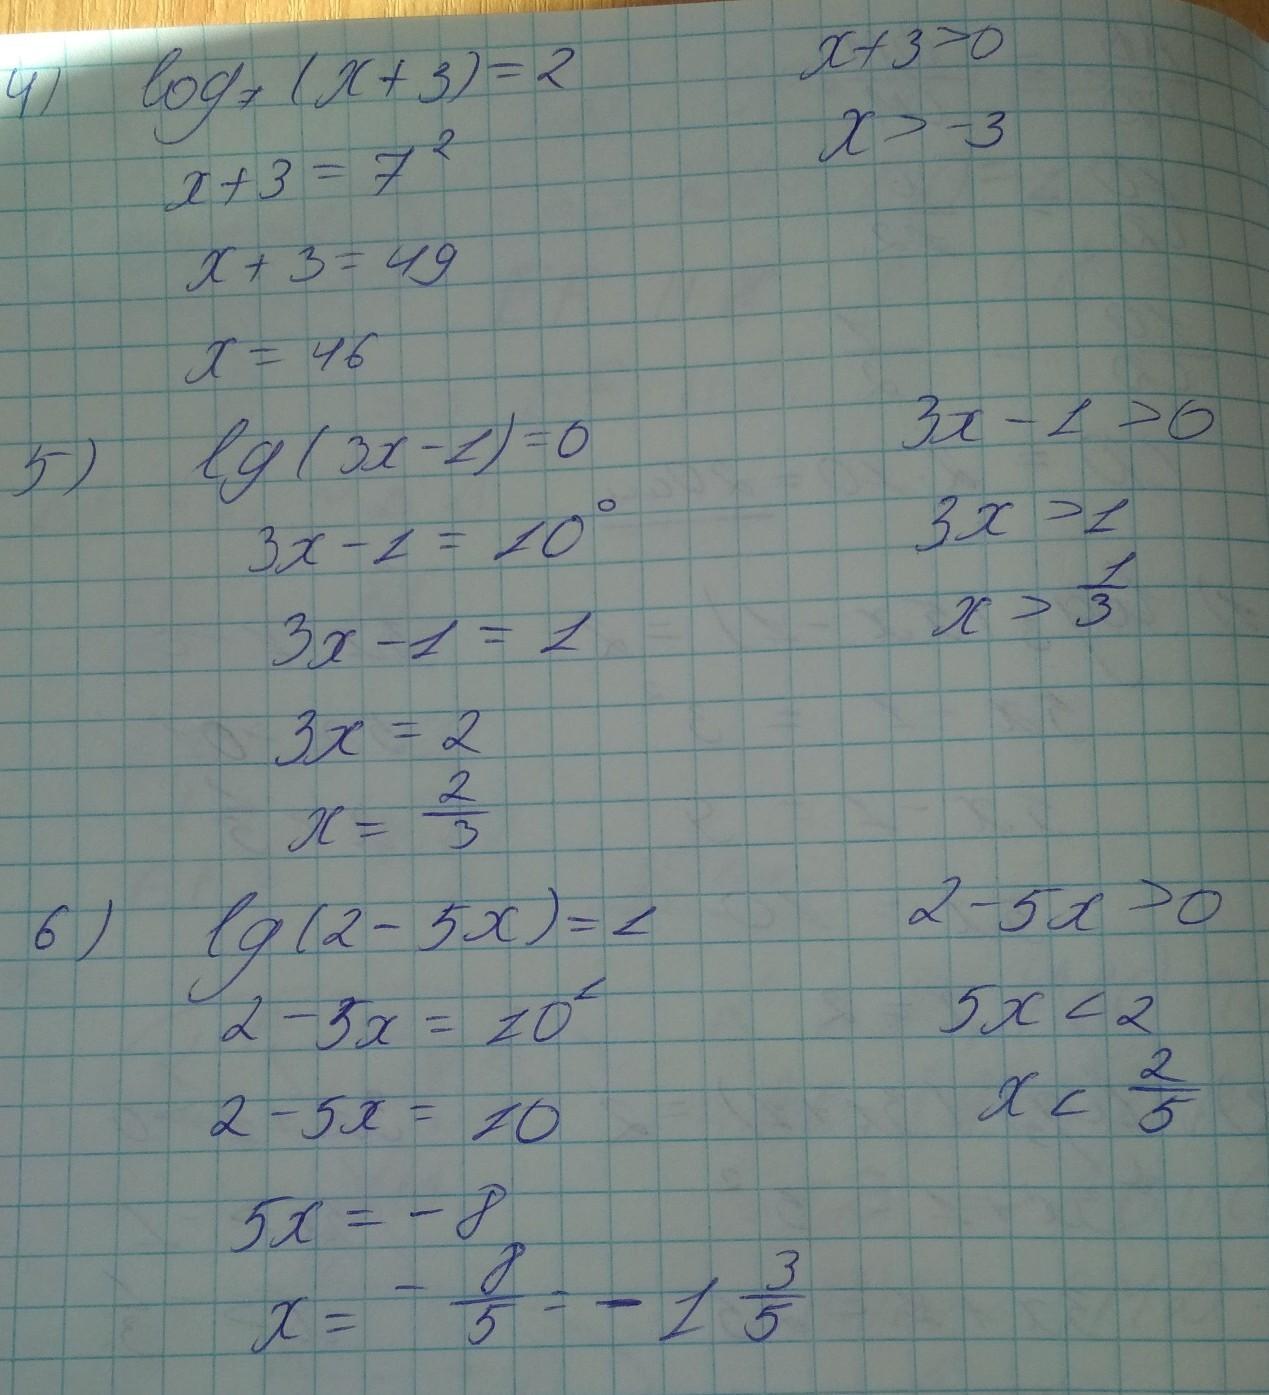 4) log₇ (x+3) = 2    x+3>0
x+3 = 7²    x > -3
x+3 = 49
x = 46
5) lg(3x-1)=0    3x-1>0
3x-1 = 10⁰    3x>1
3x-1 = 1    x > 1/3
3x = 2
x = 2/3
6) lg(2-5x)=1    2-5x>0
2-5x = 10¹    5x<2
2-5x = 10    x < 2/5
5x = -8
x = - 8/5 = - 1 3/5